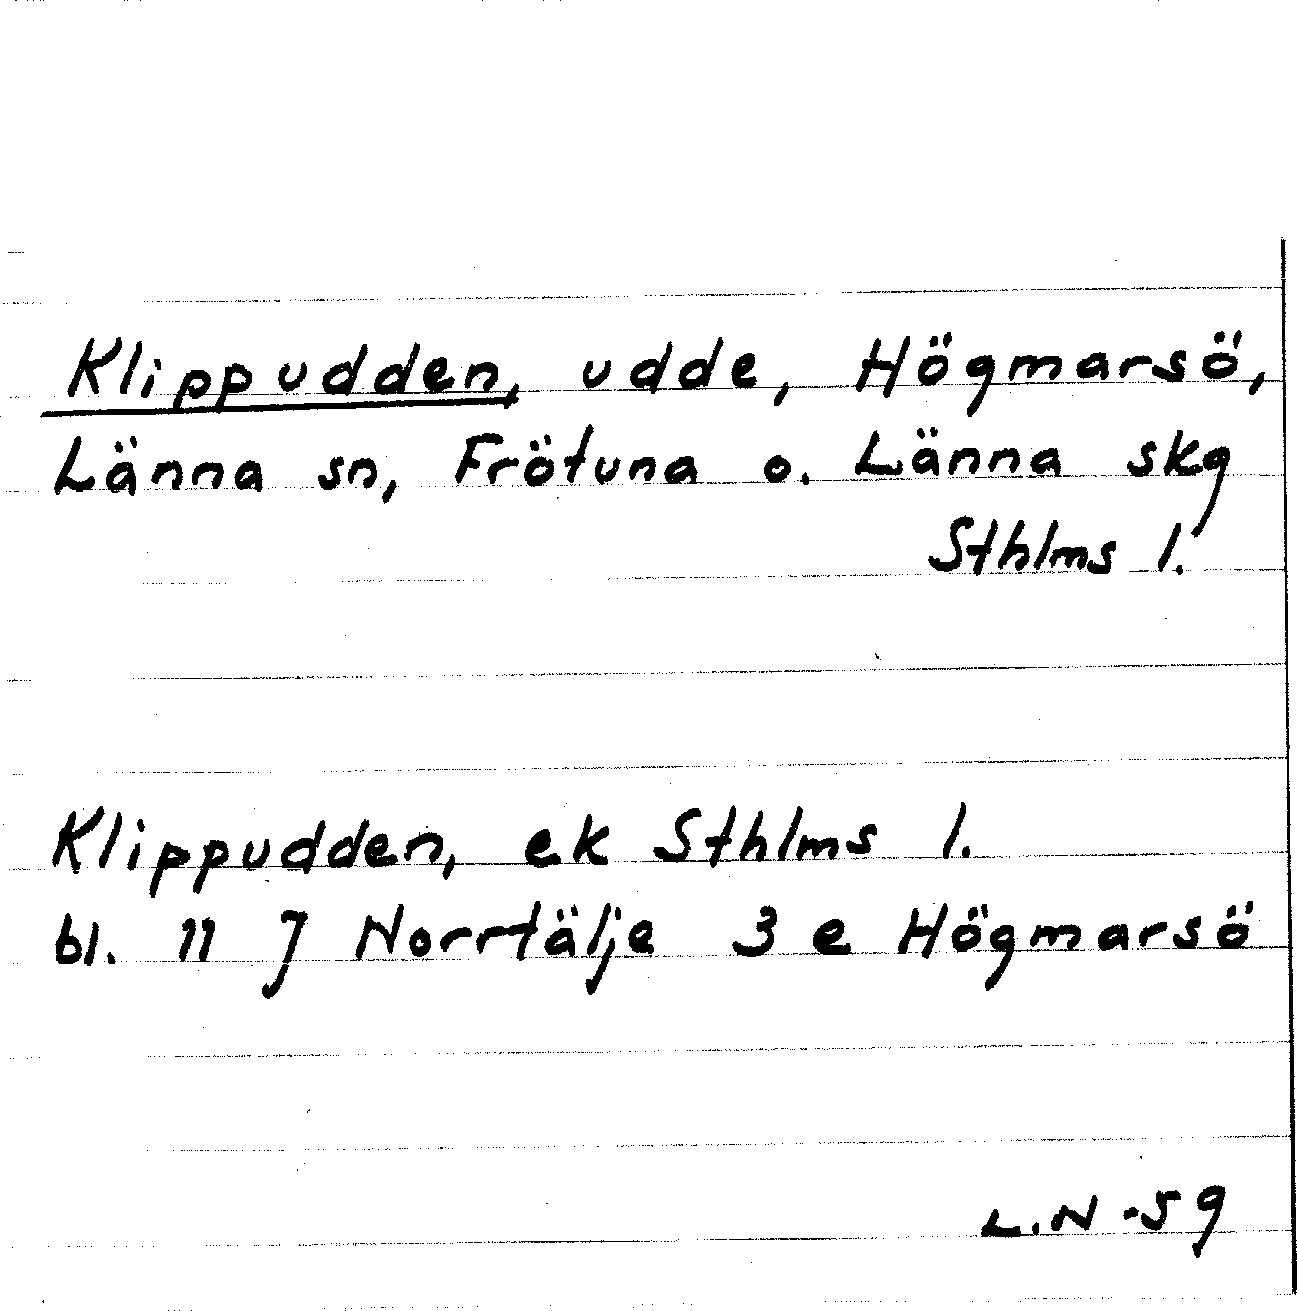 Klippudden, udde, Högmarsö,
Länna sn, Frötuna o. Länna skg
Sthlms l.
Klippudden, ek Sthlms l.
bl. 11 J Norrtälje 3 e Högmarsö
L.N -59